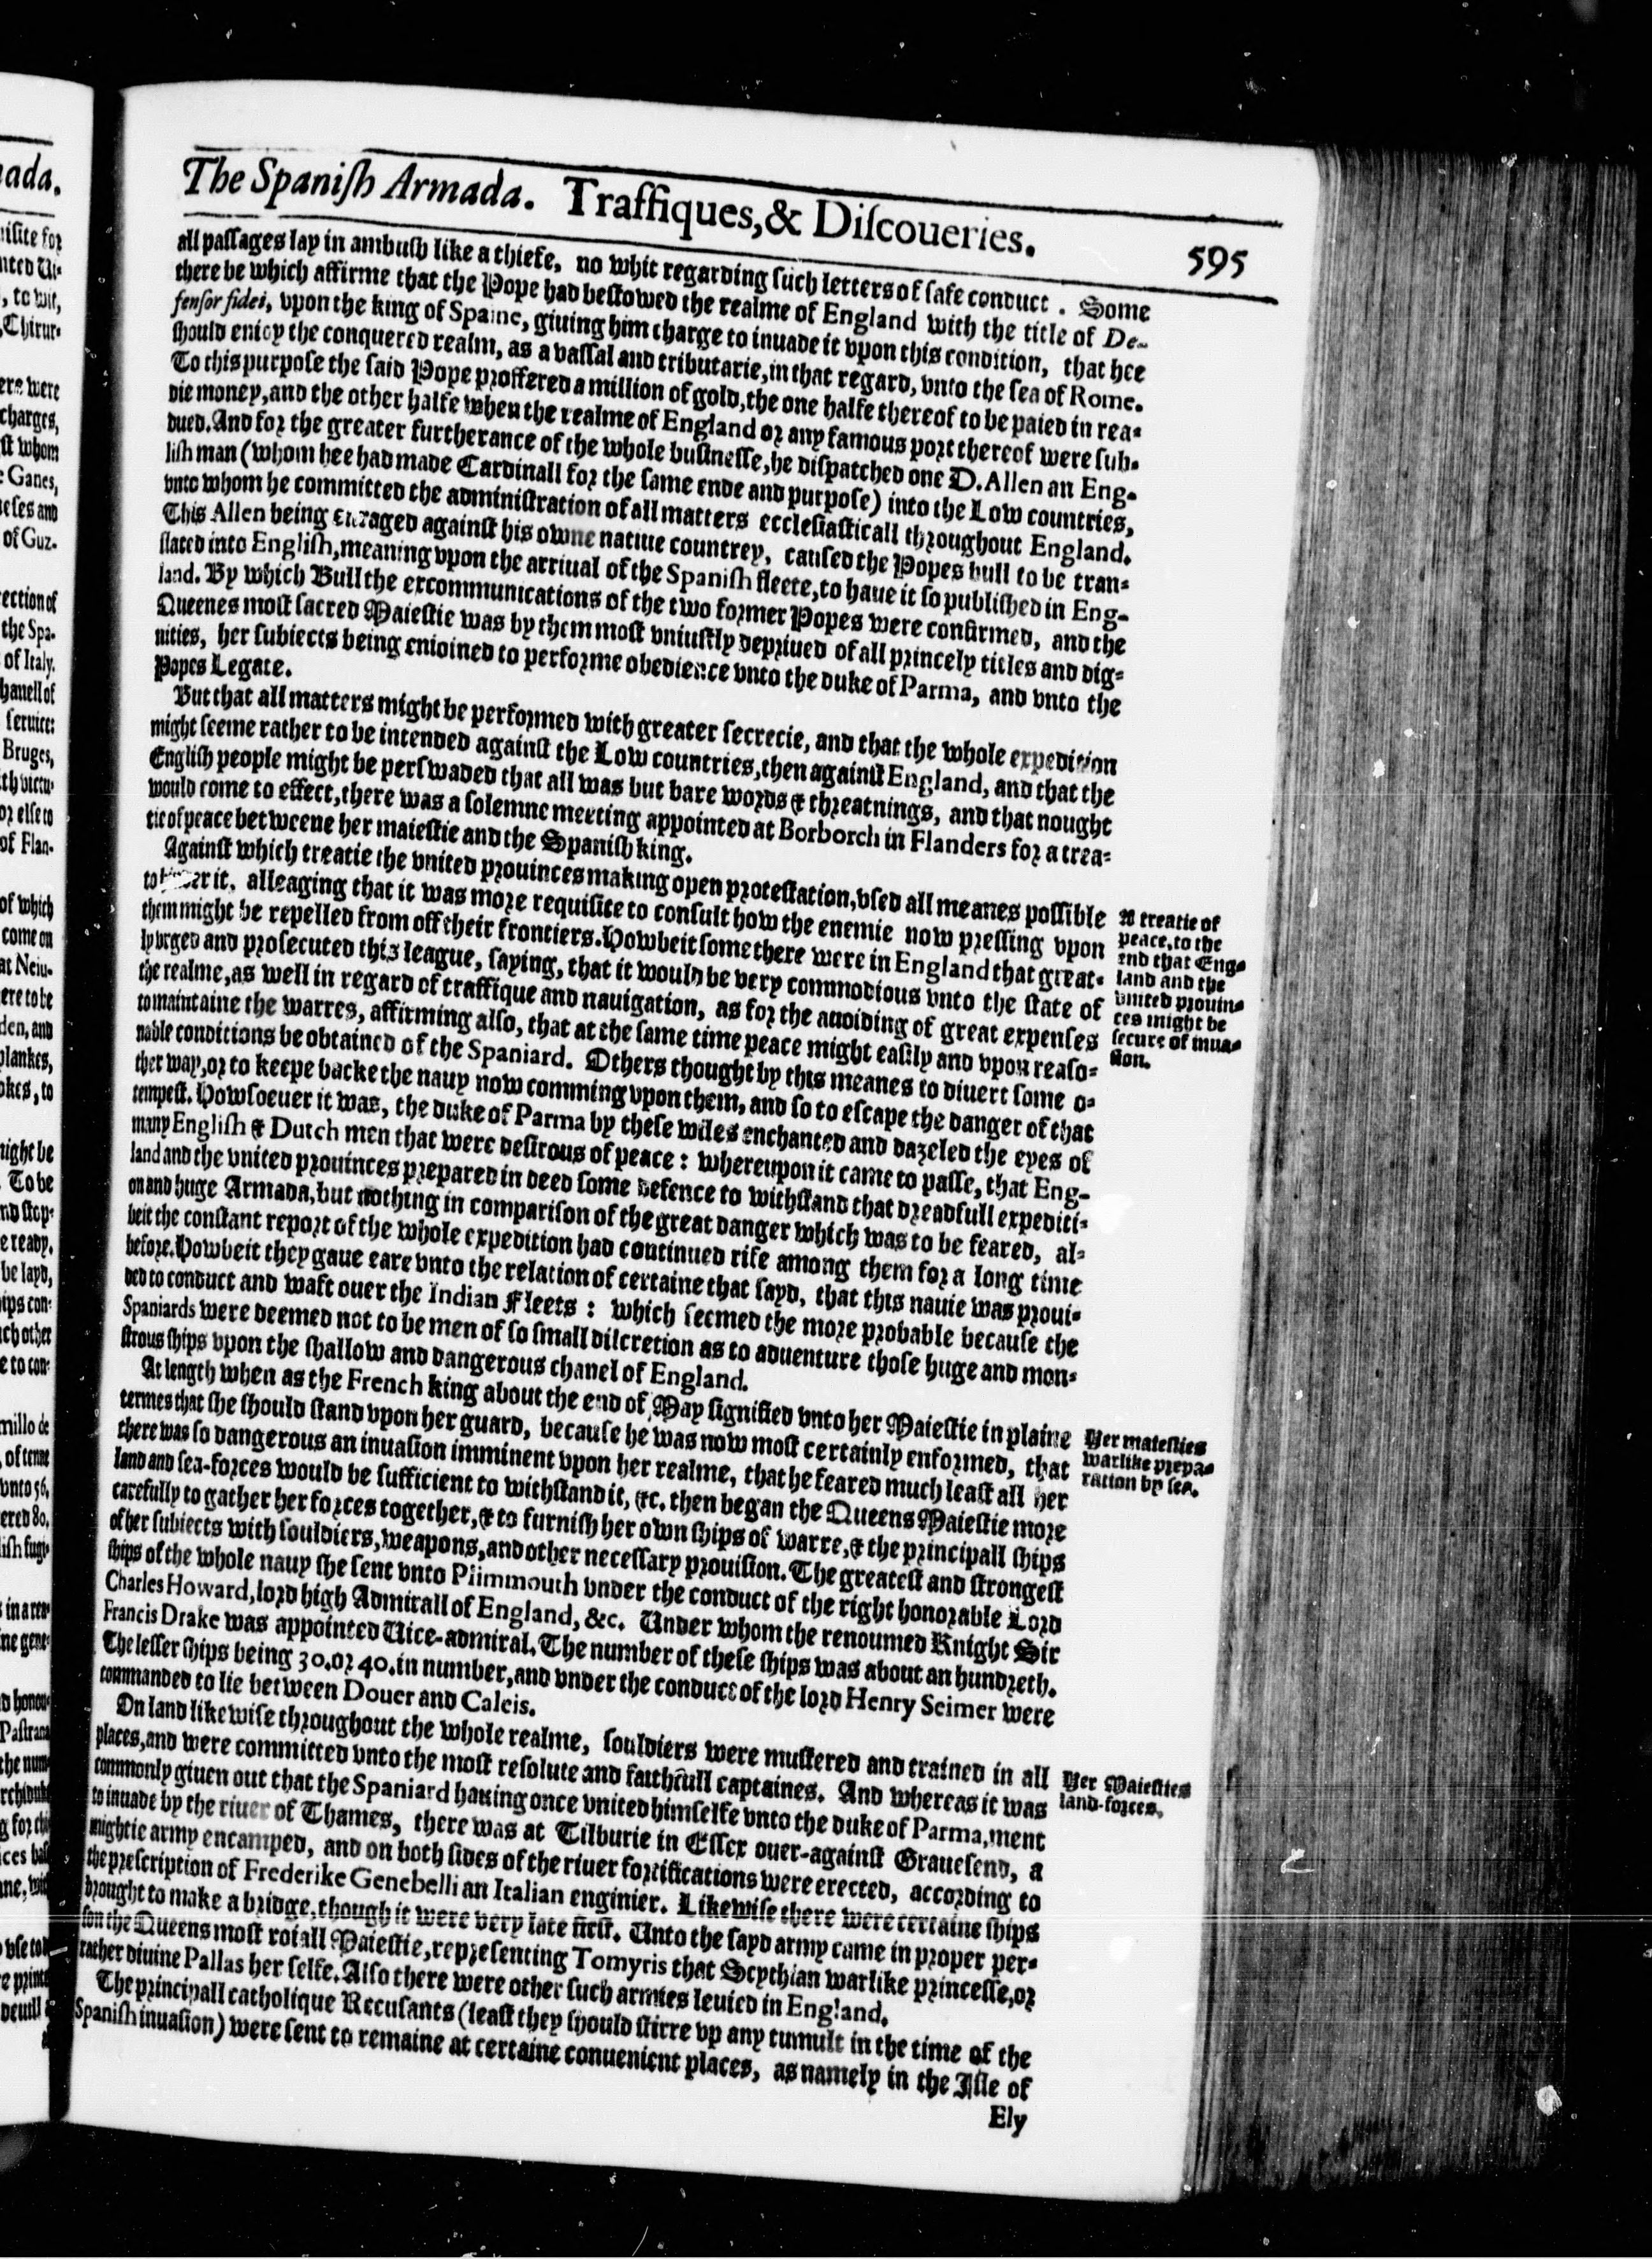 The Spaniſh Armada. Traffiques,& Diſcoueries. 595
all paſſages lay in ambuſh like a thiefe, no whit regarding ſuch letters of ſafe conduct . Some
there be which affirme that the Pope had beſtowed the realme of England with the title of De-
fenſor fidei, vpon the king of Spaine, giuing him charge to inuade it vpon this condition, that hee
ſhould enioy the conquered realm, as a vaſſal and tributarie,in that regard, vnto the ſea of Rome.
To this purpoſe the ſaid Pope proffered a million of gold,the one halfe thereof to be paied in rea-
die money,and the other halfe when the realme of England or any famous port thereof were ſub-
dued.And for the greater furtherance of the whole buſineſſe,he diſpatched one D.Allen an Eng-
liſh man (whom hee had made Cardinall for the ſame ende and purpoſe) into the Low countries,
vnto whom he committed the adminiſtration of all matters eccleſiaſticall throughout England.
This Allen being enraged againſt his owne natiue countrey, cauſed the Popes bull to be tran-
ſlated into Engliſh,meaning vpon the arriual of the Spaniſh fleete,to haue it ſo publiſhed in Eng-
land. By which Bull the excommunications of the two former Popes were confirmed, and the
Queenes moſt ſacred Maieſtie was by them moſt vniuſtly depriued of all princely titles and dig-
nities, her ſubiects being enioined to performe obedience vnto the duke of Parma, and vnto the
Popes Legate.
But that all matters might be performed with greater ſecrecie, and that the whole expedition
might ſeeme rather to be intended againſt the Low countries,then againſt England, and that the
Engliſh people might be perſwaded that all was but bare words & threatnings, and that nought
would come to effect,there was a ſolemne meeting appointed at Borborch in Flanders for a trea-
tie of peace betweene her maieſtie and the Spaniſh king.
Againſt which treatie the vnited prouinces making open proteſtation,vſed all meanes poſſible
to hinder it, alleaging that it was more requiſite to conſult how the enemie now preſſing vpon
them might be repelled from off their frontiers.Howbeit ſome there were in England that great-
ly vrged and proſecuted this league, ſaying, that it would be very commodious vnto the ſtate of
the realme,as well in regard of traffique and nauigation, as for the auoiding of great expenſes
to maintaine the warres, affirming alſo, that at the ſame time peace might eaſily and vpon reaſo-
nable conditions be obtained of the Spaniard. Others thought by this meanes to diuert ſome o-
ther way,or to keepe backe the nauy now comming vpon them, and ſo to eſcape the danger of that
tempeſt. Howſoeuer it was, the duke of Parma by theſe wiles enchanted and dazeled the eyes of
many Engliſh & Dutch men that were deſirous of peace : whereupon it came to paſſe, that Eng-
land and the vnited prouinces prepared in deed ſome defence to withſtand that dreadfull expediti-
on and huge Armada,but nothing in compariſon of the great danger which was to be feared, al-
beit the conſtant report of the whole expedition had continued rife among them for a long time
before.Howbeit they gaue eare vnto the relation of certaine that ſayd, that this nauie was proui-
ded to conduct and waft ouer the Indian Fleets : which ſeemed the more probable becauſe the
Spaniards were deemed not to be men of ſo ſmall diſcretion as to aduenture thoſe huge and mon-
ſtrous ſhips vpon the ſhallow and dangerous chanel of England.
A treatie of
peace,to the
end that Eng-
land and the
vnited prouin-
ces might be
ſecure of inua-
ſion.
At length when as the French king about the end of May ſignified vnto her Maieſtie in plaine
termes that ſhe ſhould ſtand vpon her guard, becauſe he was now moſt certainly enformed, that
there was ſo dangerous an inuaſion imminent vpon her realme, that he feared much leaſt all her
land and ſea-forces would be ſufficient to withſtand it, &c. then began the Queens Maieſtie more
carefully to gather her forces together,& to furniſh her own ſhips of warre,& the principall ſhips
of her ſubiects with ſouldiers,weapons,and other neceſſary prouiſion. The greateſt and ſtrongeſt
ſhips of the whole nauy ſhe ſent vnto Plimmouth vnder the conduct of the right honorable Lord
Charles Howard,lord high Admirall of England, &c. Under whom the renoumed Knight Sir
Francis Drake was appointed Uice-admiral. The number of theſe ſhips was about an hundreth.
The leſſer ſhips being 30.or 40.in number,and vnder the conduct of the lord Henry Seimer were
commanded to lie between Douer and Caleis.
Her maieſties
warlike prepa-
ration by ſea.
On land likewiſe throughout the whole realme, ſouldiers were muſtered and trained in all
places,and were committed vnto the moſt reſolute and faithfull captaines. And whereas it was
commonly giuen out that the Spaniard hauing once vnited himſelfe vnto the duke of Parma,ment
to inuade by the riuer of Thames, there was at Tilburie in Eſſex ouer-againſt Graueſend, a
mightie army encamped, and on both ſides of the riuer fortifications were erected, according to
the preſcription of Frederike Genebelli an Italian enginier. Likewiſe there were certaine ſhips
brought to make a bridge,though it were very late firſt. Unto the ſayd army came in proper per-
ſon the Queens moſt roiall Maieſtie,repreſenting Tomyris that Scythian warlike princeſſe,or
rather diuine Pallas her ſelfe.Alſo there were other ſuch armies leuied in England.
Her Maieſties
land-forces.
The principall catholique Recuſants (leaſt they ſhould ſtirre vp any tumult in the time of the
Spaniſh inuaſion) were ſent to remaine at certaine conuenient places, as namely in the Iſle of
Ely